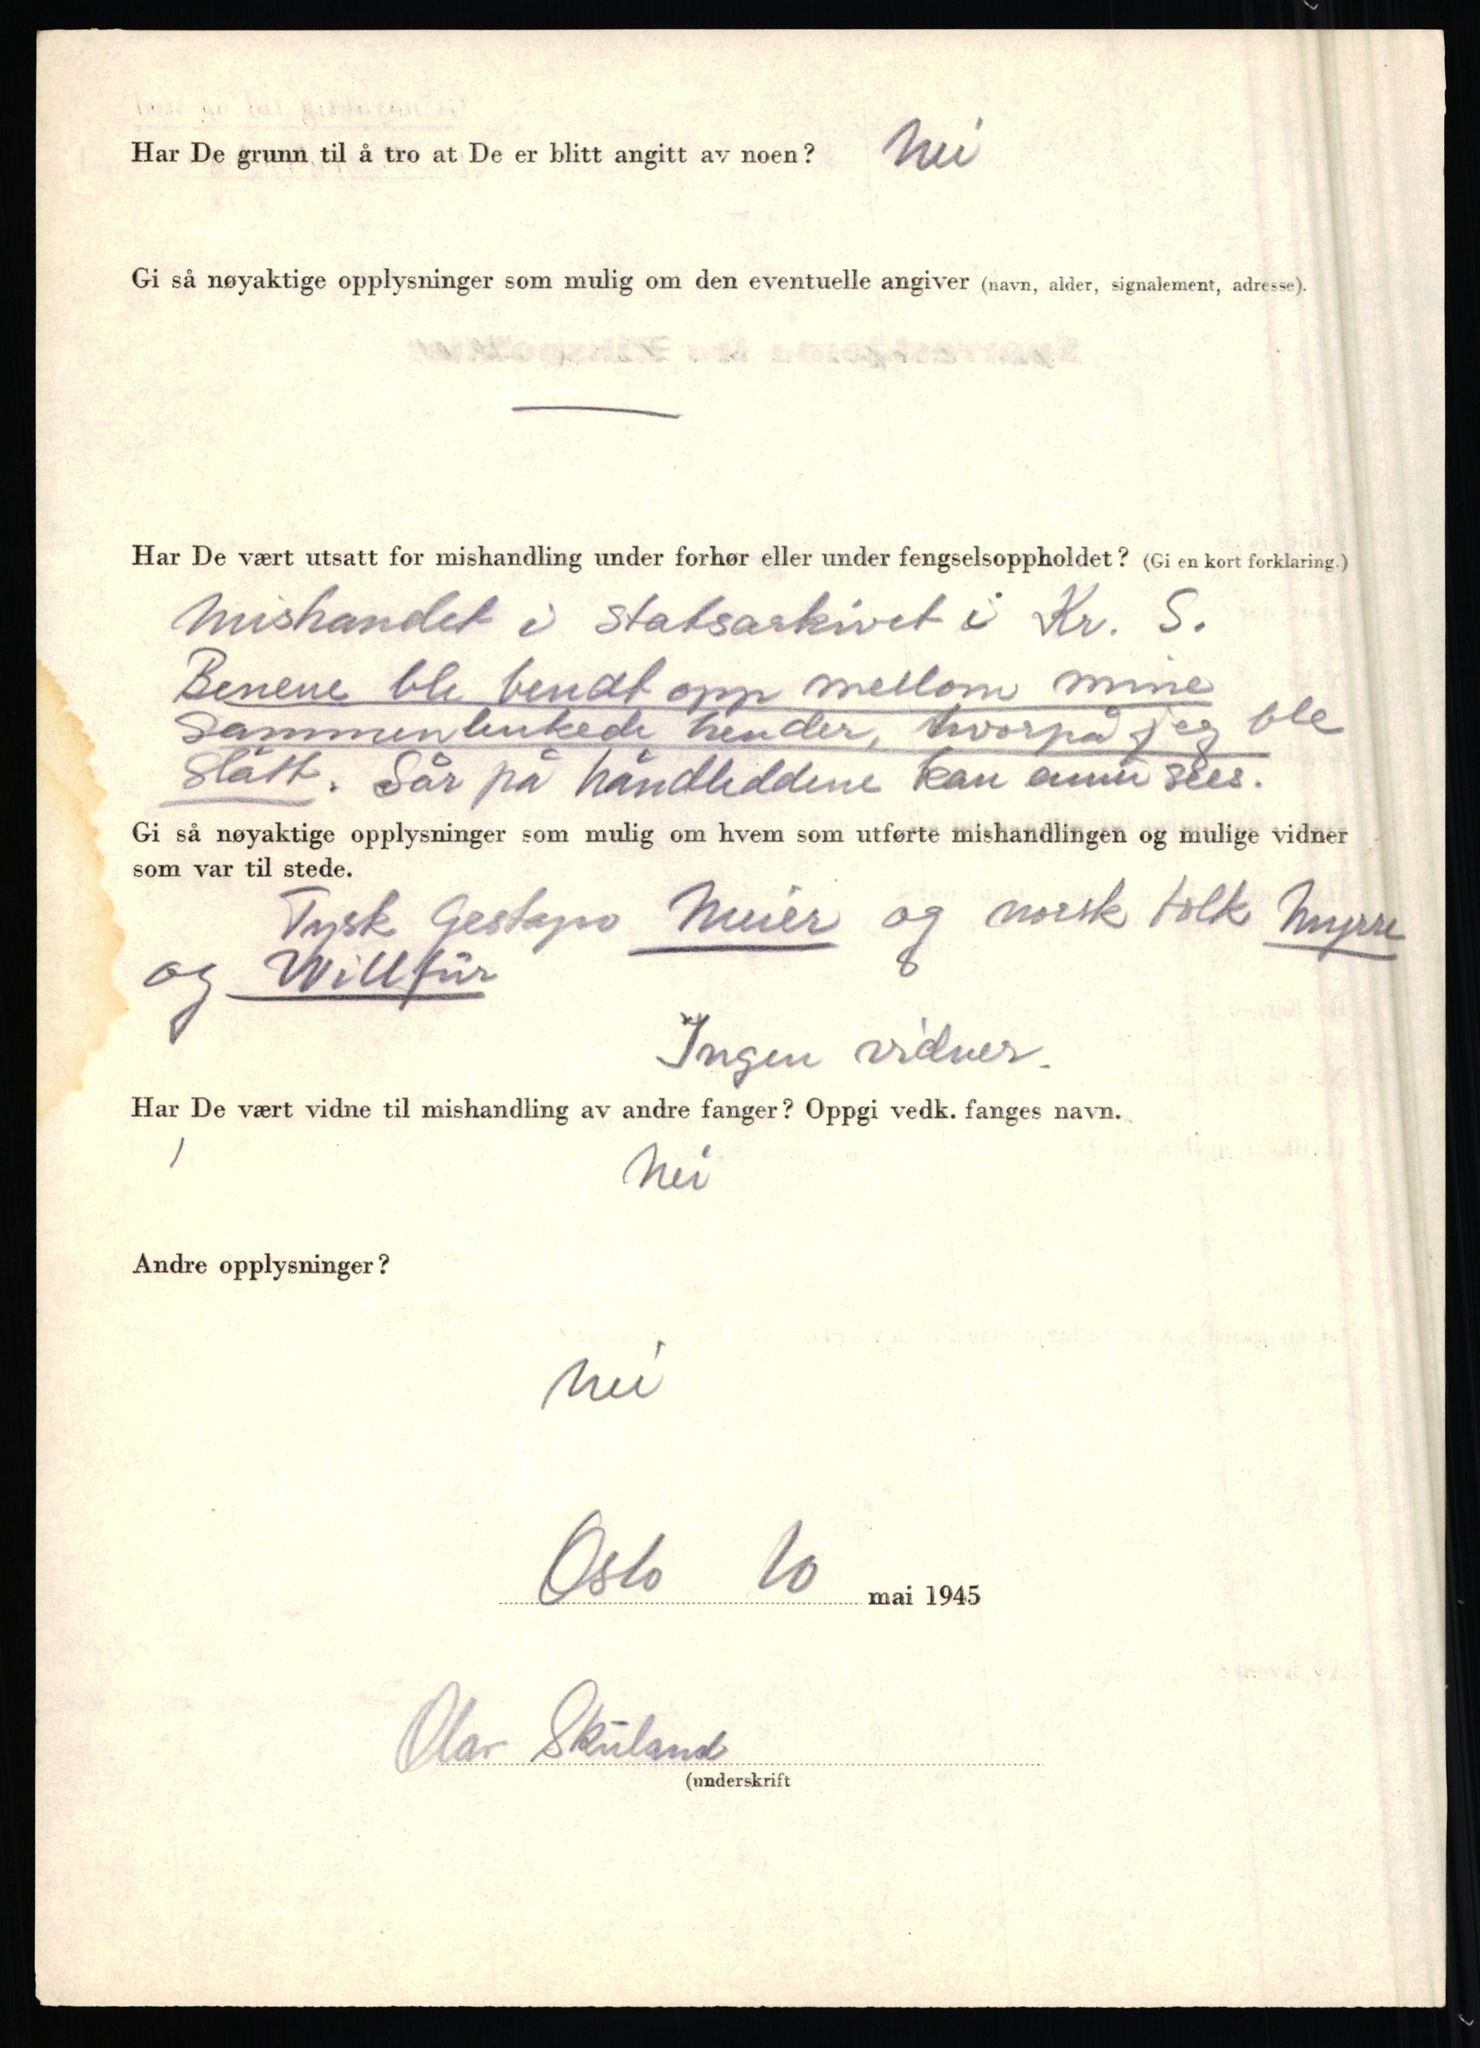 Har De grunn til å tro at De er blitt angitt av noen? Nei
Gi så nøyaktige opplysninger som mulig om den eventuelle angiver (navn, alder, signalement, adresse).
Har De vært utsatt for mishandling under forhør eller under fengselsoppholdet? (Gi en kort forklaring.)
Mishandlet i statsarkivet i Kr. S.
Benene ble bendt opp mellom mine
sammenlenkede hender, hvorpå jeg ble
slått. Sår på håndleddene kan ennu sees.
Gi så nøyaktige opplysninger som mulig om hvem som utførte mishandlingen og mulige vidner
som var til stede.
Tysk Gestapo Meier og norsk tolk Myrre
og Willfür
Ingen vidner.
Har De vært vidne til mishandling av andre fanger? Oppgi vedk. fanges navn.
Nei
Andre opplysninger?
Nei
Oslo 10 mai 1945
Olav Skuland
(underskrift